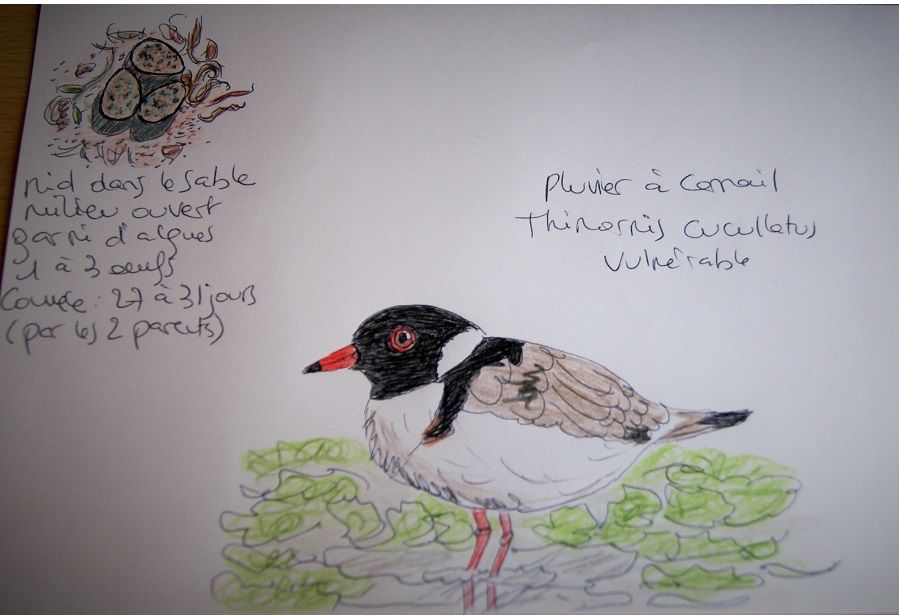 nid dans le sable
milieu ouvert
garni d'algues
1 à 3 oeufs
Couvée : 27 à 31 jours
(par les 2 parents)
pluvier à Camail
Thinornis cucullatus
Vulnérable